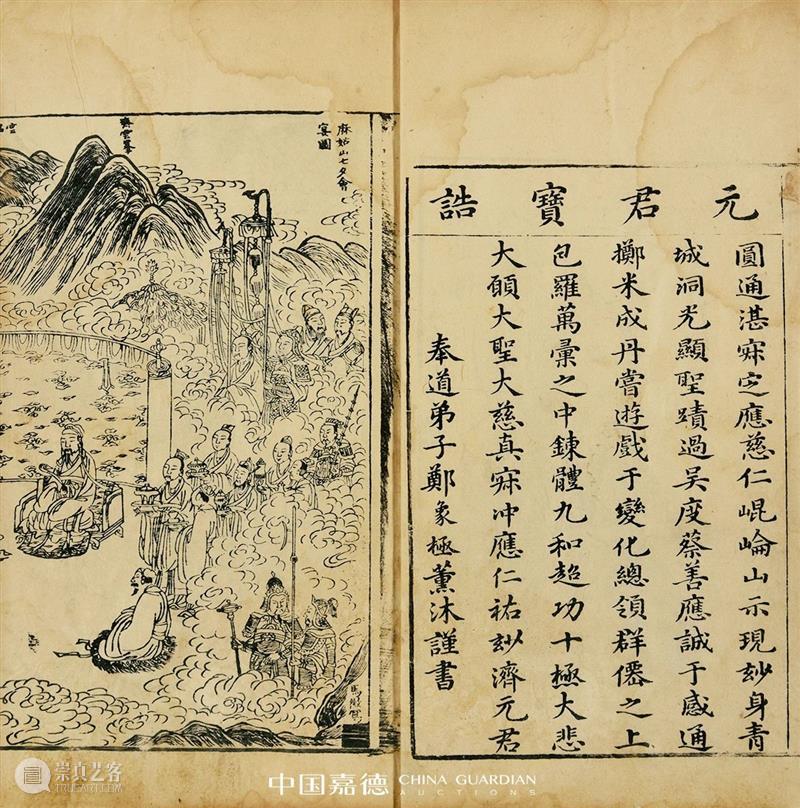 元君寶誥
圓通湛寂定應慈仁崐崘山示現玅身青
城洞光顯聖蹟過吳度蔡善應誠于感通
擲米成丹嘗遊戲于變化總領群僊之上
包羅萬彙之中鍊體九和超功十極大悲
大願大聖大慈真寂冲應仁祐玅濟元君
奉道弟子鄭象極薰沐謹書
麻姑山七夕會
宴圖
齊雲峯
中国嘉德
CHINA GUARDIAN
AUCTIONS
崇真艺客